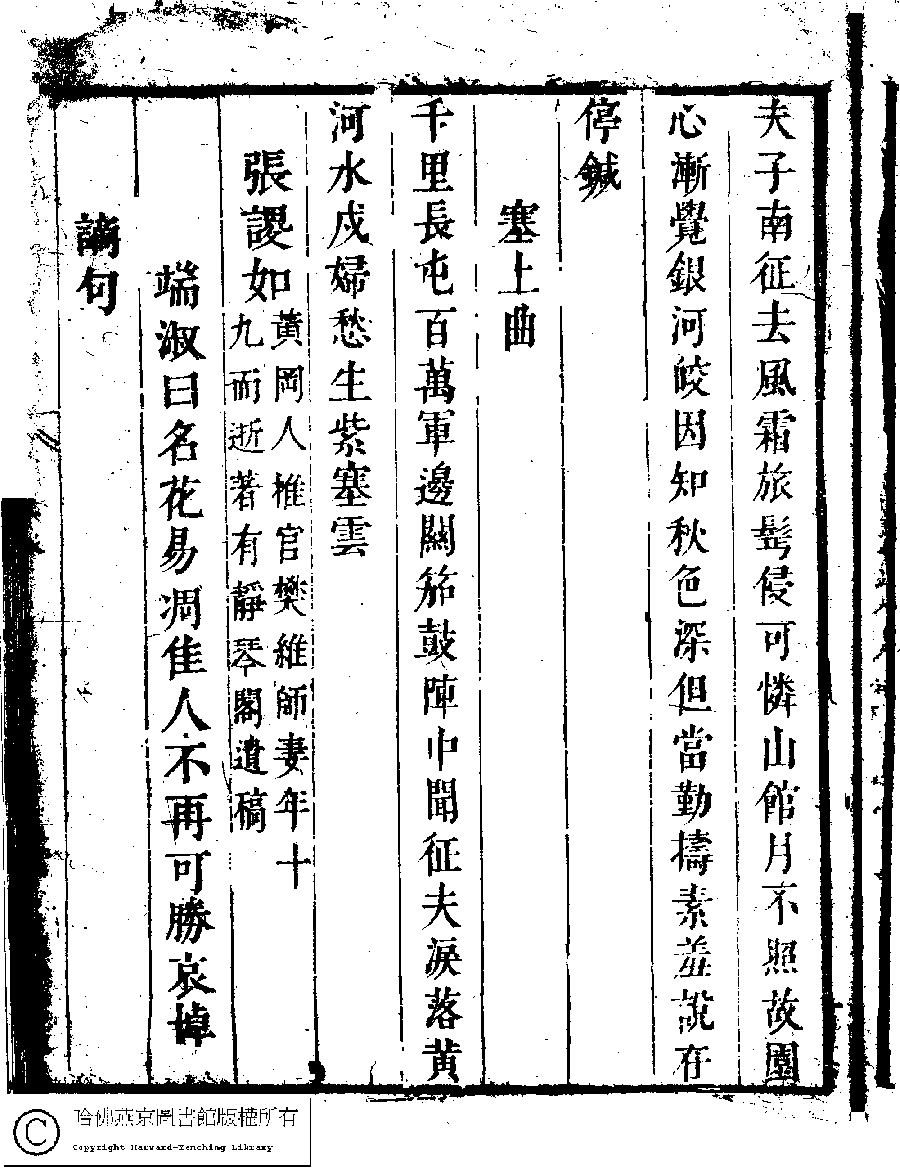 夫子南征去風霜旅髩侵可憐山館月不照故園
心漸覺銀河皎因知秋色深但當勤擣素羞說在
停鍼
塞上曲
千里長屯百萬軍邊關笳鼓陣中聞征夫淚落黃
河水戍婦愁生紫塞雲
張謖如
黃岡人推官樊維師妻年十
九而逝著有靜琴閣遺稿
端淑曰名花易凋佳人不再可勝哀悼
謫句
哈佛燕京圖書館版權所有
Copyright Harvard-Yenching Library